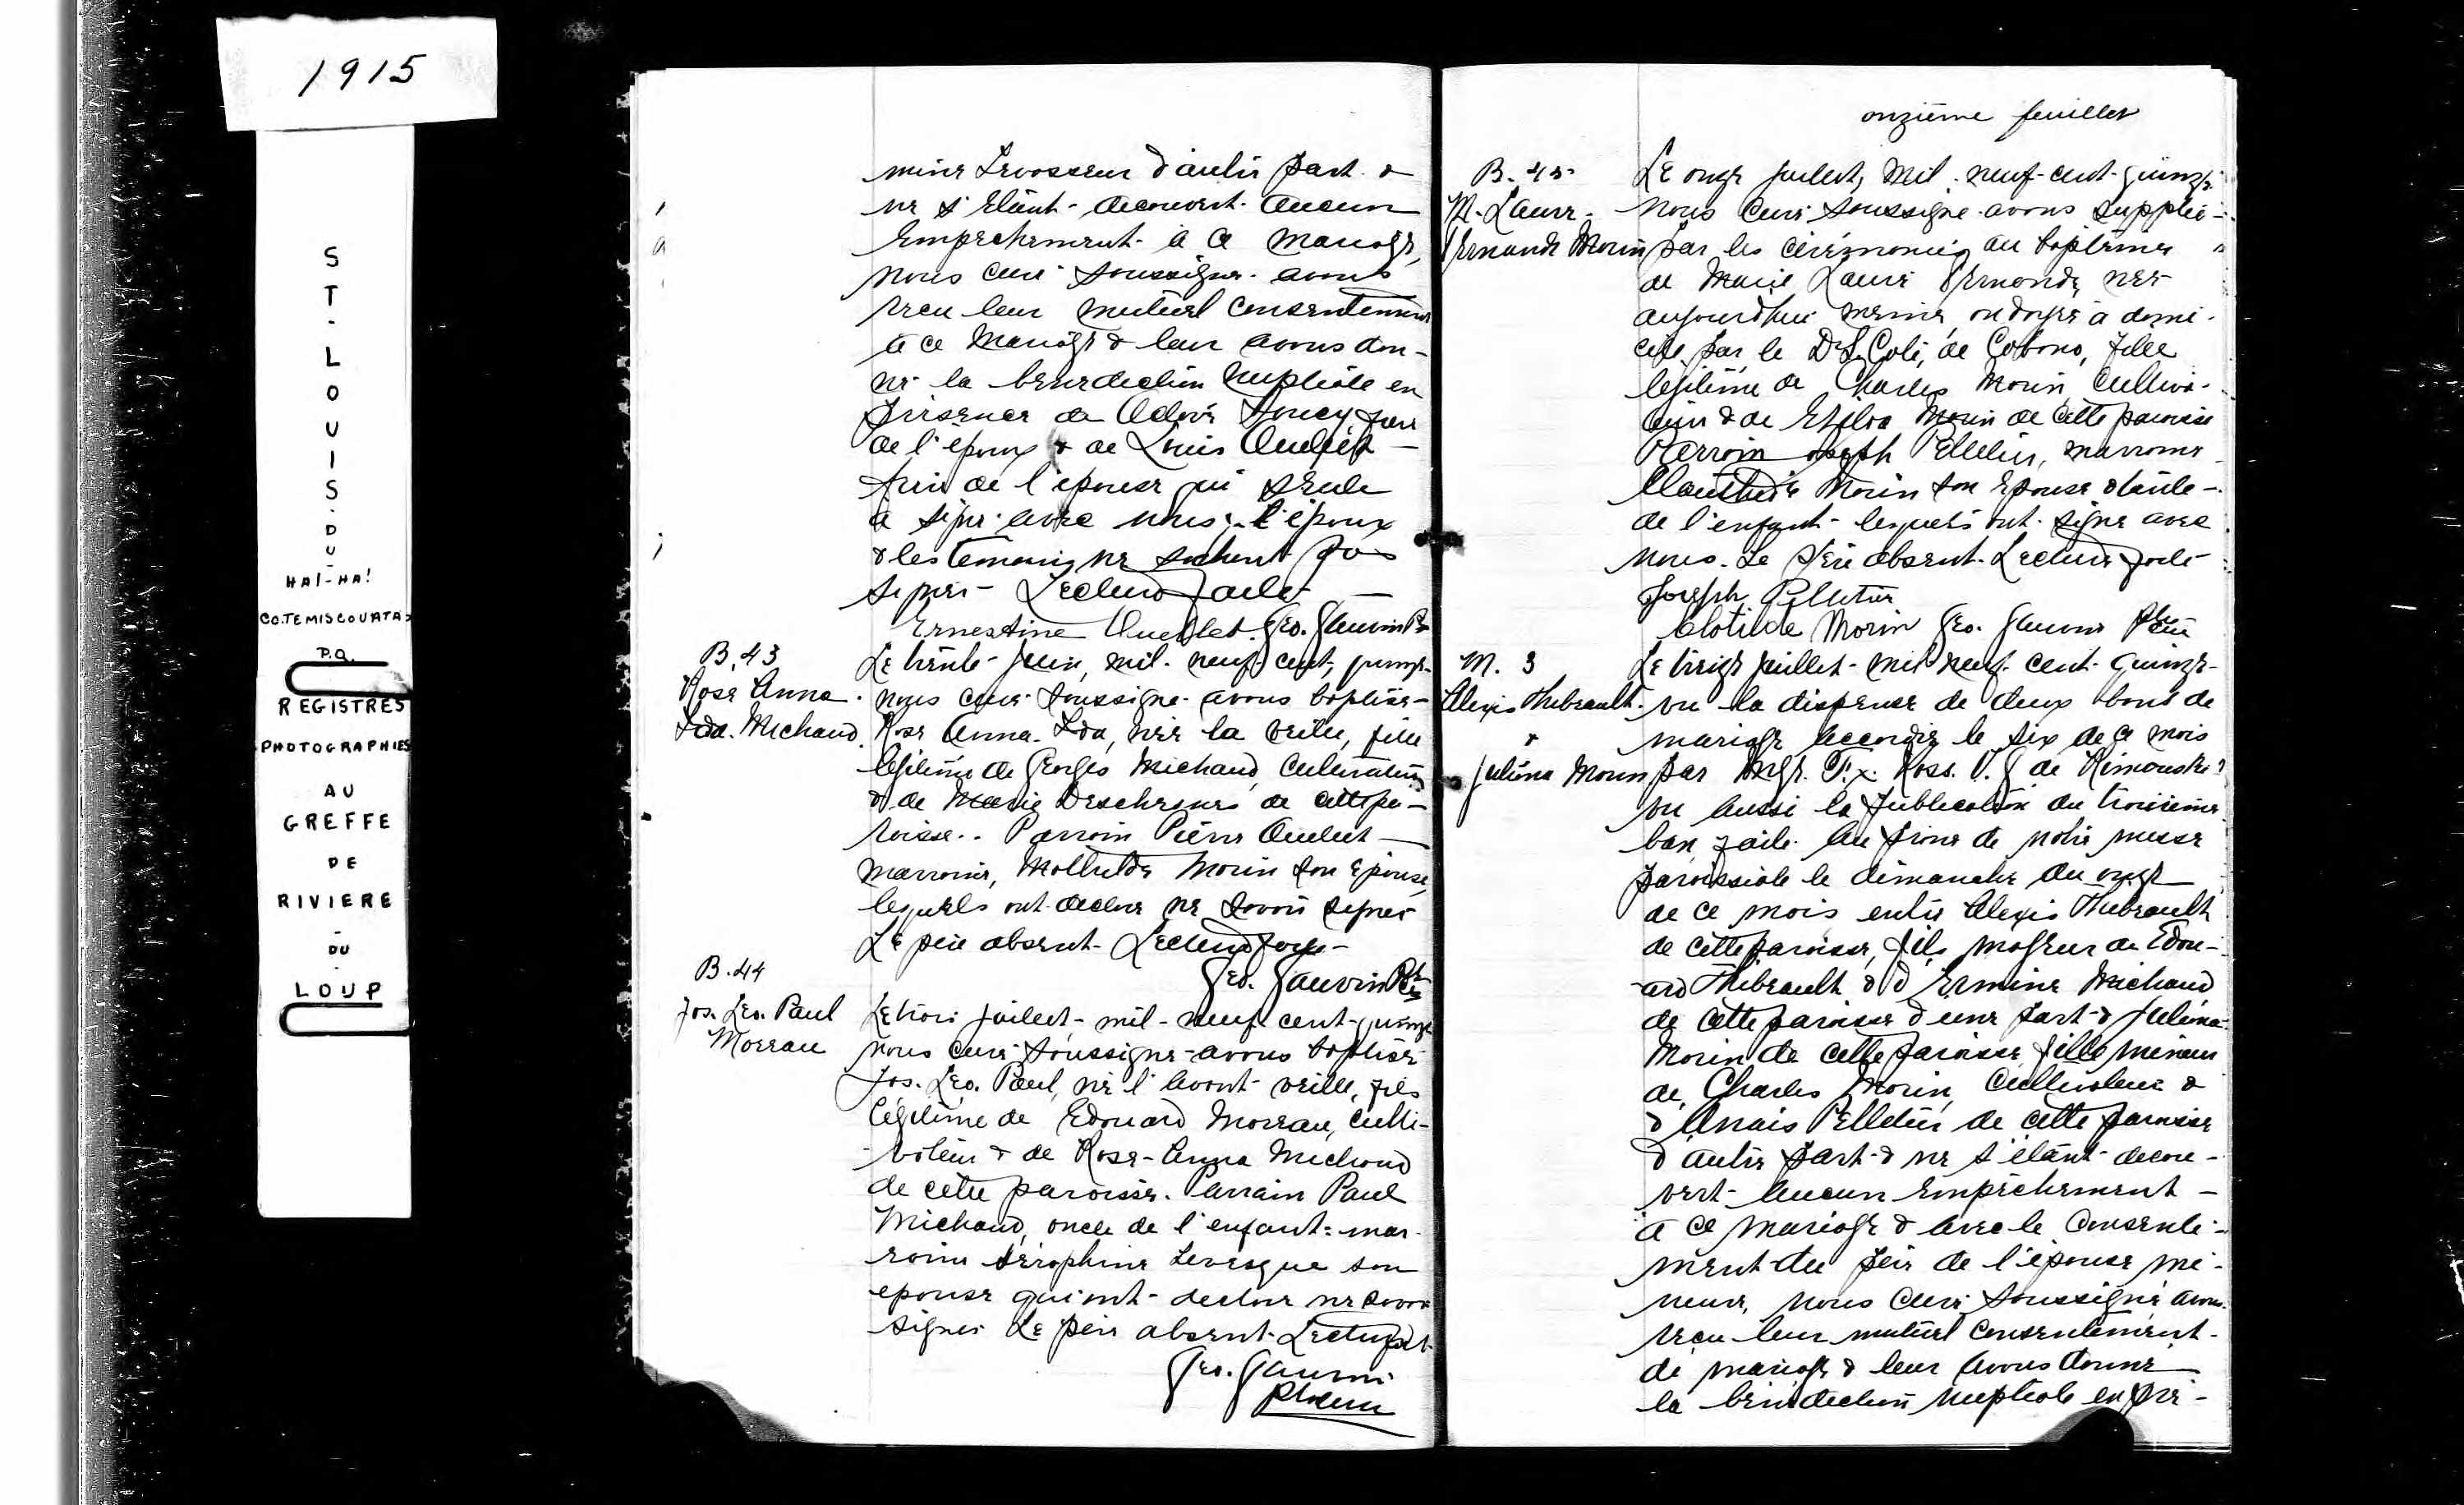 1915
ST-LOUIS-DU-
HA!-HA!
CO.TEMISCOUATA
P.Q.
REGISTRES
PHOTOGRAPHIES
AU
GREFFE
DE
RIVIERE
-
DU
-
LOUP
mine Levasseur d'autre part &
ne s'étant découvert aucun
empêchement à ce mariage,
nous curé soussigné avons
reçu leur mutuel consentement
à ce mariage & leur avons don-
né la bénédiction nuptiale en
présence de Soucy père
de l'époux & de Louis Ouellet
de l'épouse qui seule
a signé avec nous. L'époux
& les témoins ne sachant pas
signer. Lecture faite
Ernestine Ouellet. Geo. Gauvin Ptre
B. 43
Rose Anna
Ida Michaud
Le trente juin, mil neuf cent quinze
nous curé soussigné avons baptisé
Rose Anna Ida, née la veille, fille
légitime de Georges Michaud cultivateur
& de Marie Deschenes de cette pa-
roisse. Parrain Pierre Ouellet
marraine, Morin son épouse,
lesquels ont déclaré ne savoir signer
Le père absent. Lecture faite
Geo. Gauvin Ptre
B. 44
Jos. Leo. Paul
Moreau
Le trois juillet mil neuf cent quinze
nous curé soussigné avons baptisé
Jos. Leo. Paul, né l'avant veille, fils
légitime de Edouard Moreau, culti-
vateur & de Rose-Anna Michaud
de cette paroisse. Parrain Paul
Michaud, oncle de l'enfant: mar-
raine Séraphine Levesque son
épouse qui ont déclaré ne savoir
signer Le père absent. Lecture faite
Geo. Gauvin
Ptre curé
onzième feuillet
B. 45
M. Laure
Fernande Morin
Le onze juillet, mil neuf-cent-quinze
nous curé soussigné avons suppléé
par les cérémonies du baptême
de Marie Laure Fernande née
aujourd'hui même, ondoyée à domi-
cile par le Dr L. Coté, de Cabano, fille
légitime de Charles Morin, cultiva-
teur & de Morin de cette paroisse
Parrain Joseph Pelletier, marraine
Morin son épouse & tante
de l'enfant lesquels ont signé avec
nous. Le père absent. Lecture faite
Joseph Pelletier
Clotilde Morin Geo. Gauvin Ptre curé
M. 3
Alexis Thibeault
&
Juliena Morin
Le treize juillet mil neuf cent quinze
vu la dispense de deux bans de
mariage accordée le six de ce mois
par Mgr. F.x. Ross. V.G de Rimouski
vu aussi la publication du troisième
ban faite au prône de notre messe
paroissiale le dimanche du onze
de ce mois entre Alexis Thibeault
de cette paroisse, fils majeur de Edou-
ard Thibeault & d'Ermine Michaud
de cette paroisse d'une part & Juliena
Morin de cette paroisse fille mineure
de Charles Morin, cultivateur &
d'Anaïs Pelletier de cette paroisse
d'autre part & ne s'étant décou-
vert aucun empêchement
à ce mariage & avec le consente-
ment du père de l'épouse mi-
neure, nous curé soussigné avons
reçu leur mutuel consentement
de mariage & leur avons donné
la bénédiction nuptiale en pré-